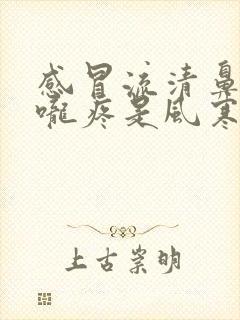 感冒流清鼻
嚨疼是風寒
上古崇明